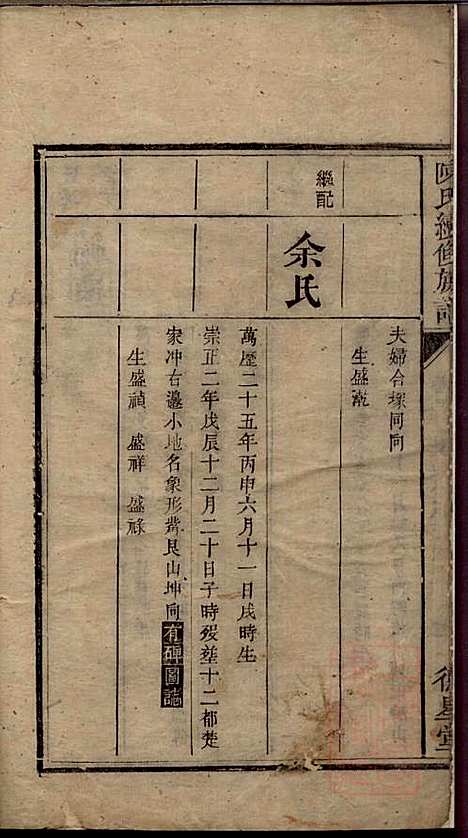 陳氏續修族譜
德星堂
夫婦合塚同向
生盛
繼配
余氏
萬歷二十五年丙申六月十一日戌時生
崇正二年戊辰十二月二十日子時歿塟十二都楚
家冲右邊小地名象形嘴艮山坤向有碑圖誌
生盛禎 盛祥 盛祿